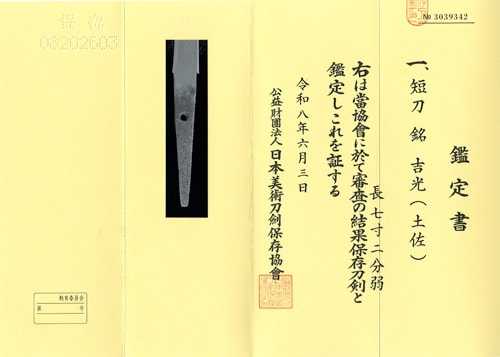 № 3039342
鑑定書
一、短刀 銘 吉光(土佐)
長七寸二分弱
右は當協會に於て審査の結果保存刀剣と
鑑定しこれを証する
令和八年六月三日
公益財團法人 日本美術刀剣保存協會
08202603
教育委員会
第 号